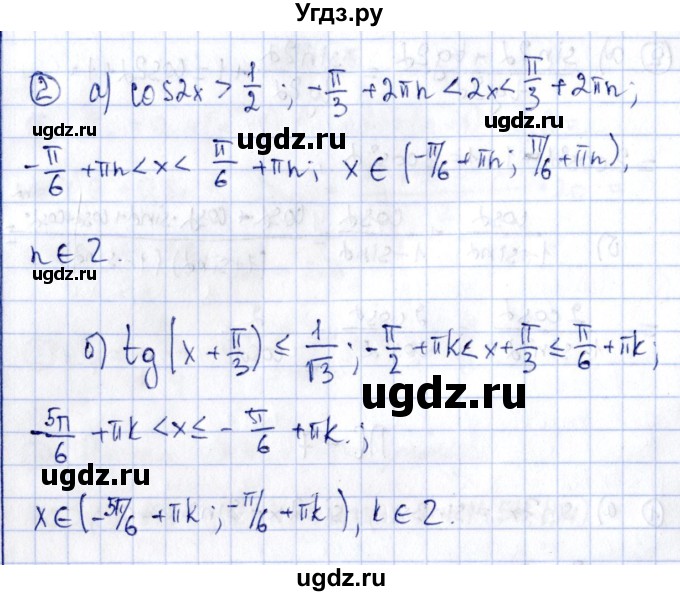 Угдз.ру
② а) cos2x > 1/2 ; -π/3 + 2πn < 2x < π/3 + 2πn;
ugdz.ru ugdz.ru
ugdz.ru
-π/6 + πn < x < π/6 + πn; x ∈ (-π/6 + πn; π/6 + πn),
n ∈ Z.
ugdz.ru ugdz.ru
б) tg(x + π/3) ≤ 1/√3 ; -π/2 + πk < x + π/3 ≤ π/6 + πk;
ugdz.ru
-5π/6 + πk < x ≤ -π/6 + πk.;
ugdz.ru ugdz.ru
x ∈ (-5π/6 + πk; -π/6 + πk), k ∈ Z.
ugdz.ru